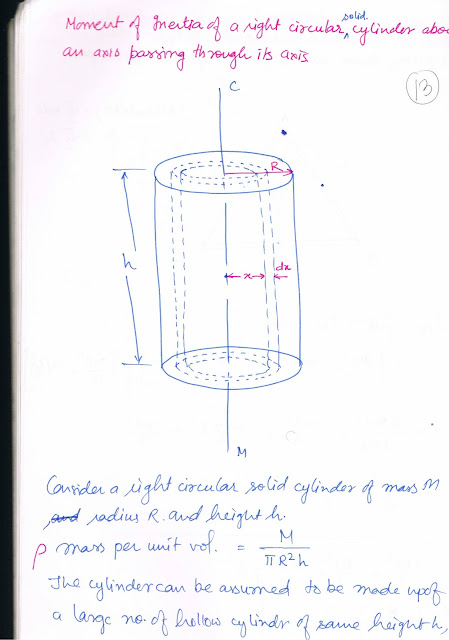 Moment of Inertia of a right circular solid cylinder abo
an axis passing through its axis
13
C
R
h
x
dx
M
Consider a right circular solid cylinder of mass M
and radius R. and height h.
ρ mass per unit vol. = M / πR²h
The cylinder can be assumed to be made up of
a large no. of hollow cylindr of same height h,